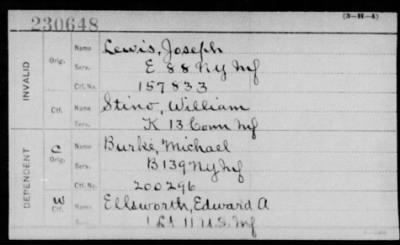 230648
(3-H-4)
INVALID
Orig. Name Lewis, Joseph
Serv. E 88 NY Inf
Ctf. No. 157833
Ctf. Name Stino, William
Serv. K 13 Conn Inf
DEPENDENT
C Orig. Name Burke, Michael
Serv. B 139 NY Inf
Ctf. No. 200296
W Ctf. Name Ellsworth, Edward A
Serv. 11 U.S. Inf